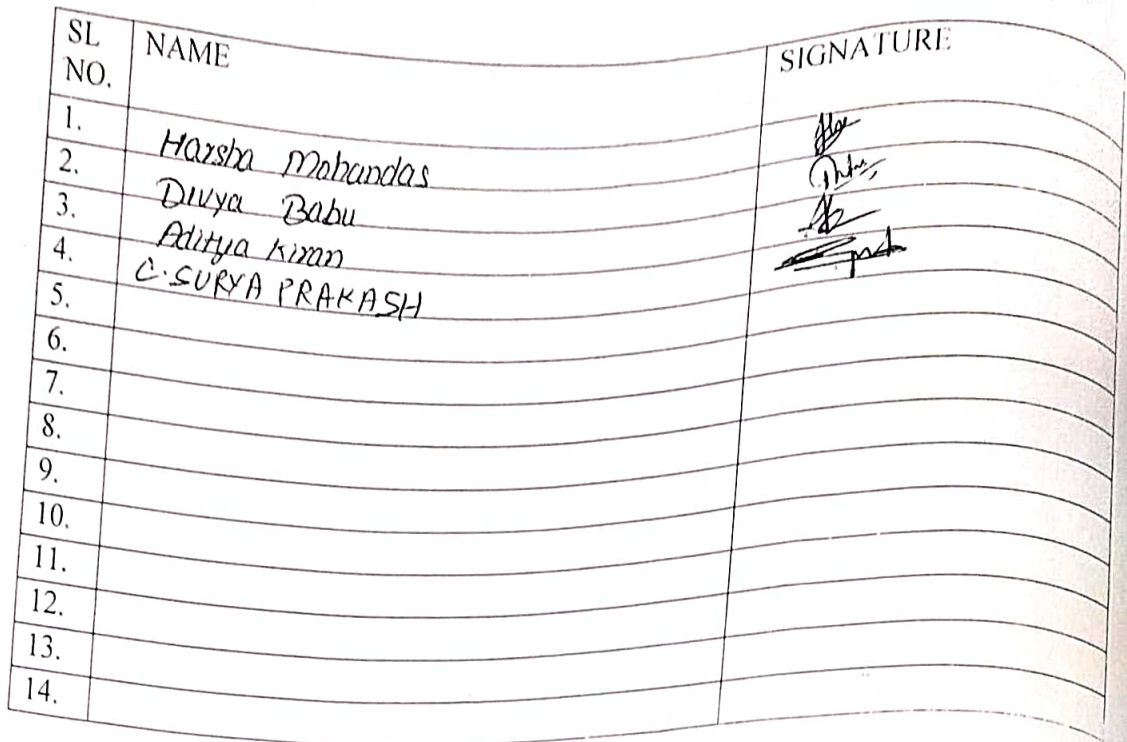 SL NO. NAME SIGNATURE
1. Harsha Mohandas
2. Divya Babu
3. Aditya Kiran
4. C. SURYA PRAKASH
5.
6.
7.
8.
9.
10.
11.
12.
13.
14.